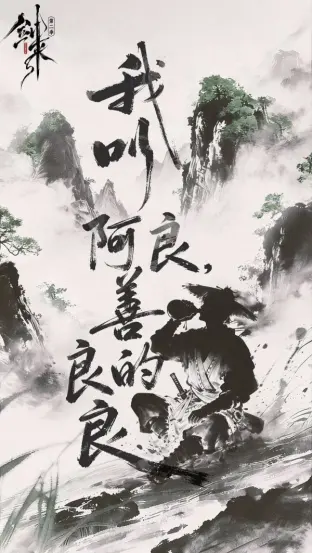 剑来
第二季
我
叫
阿良,
善
良的
良